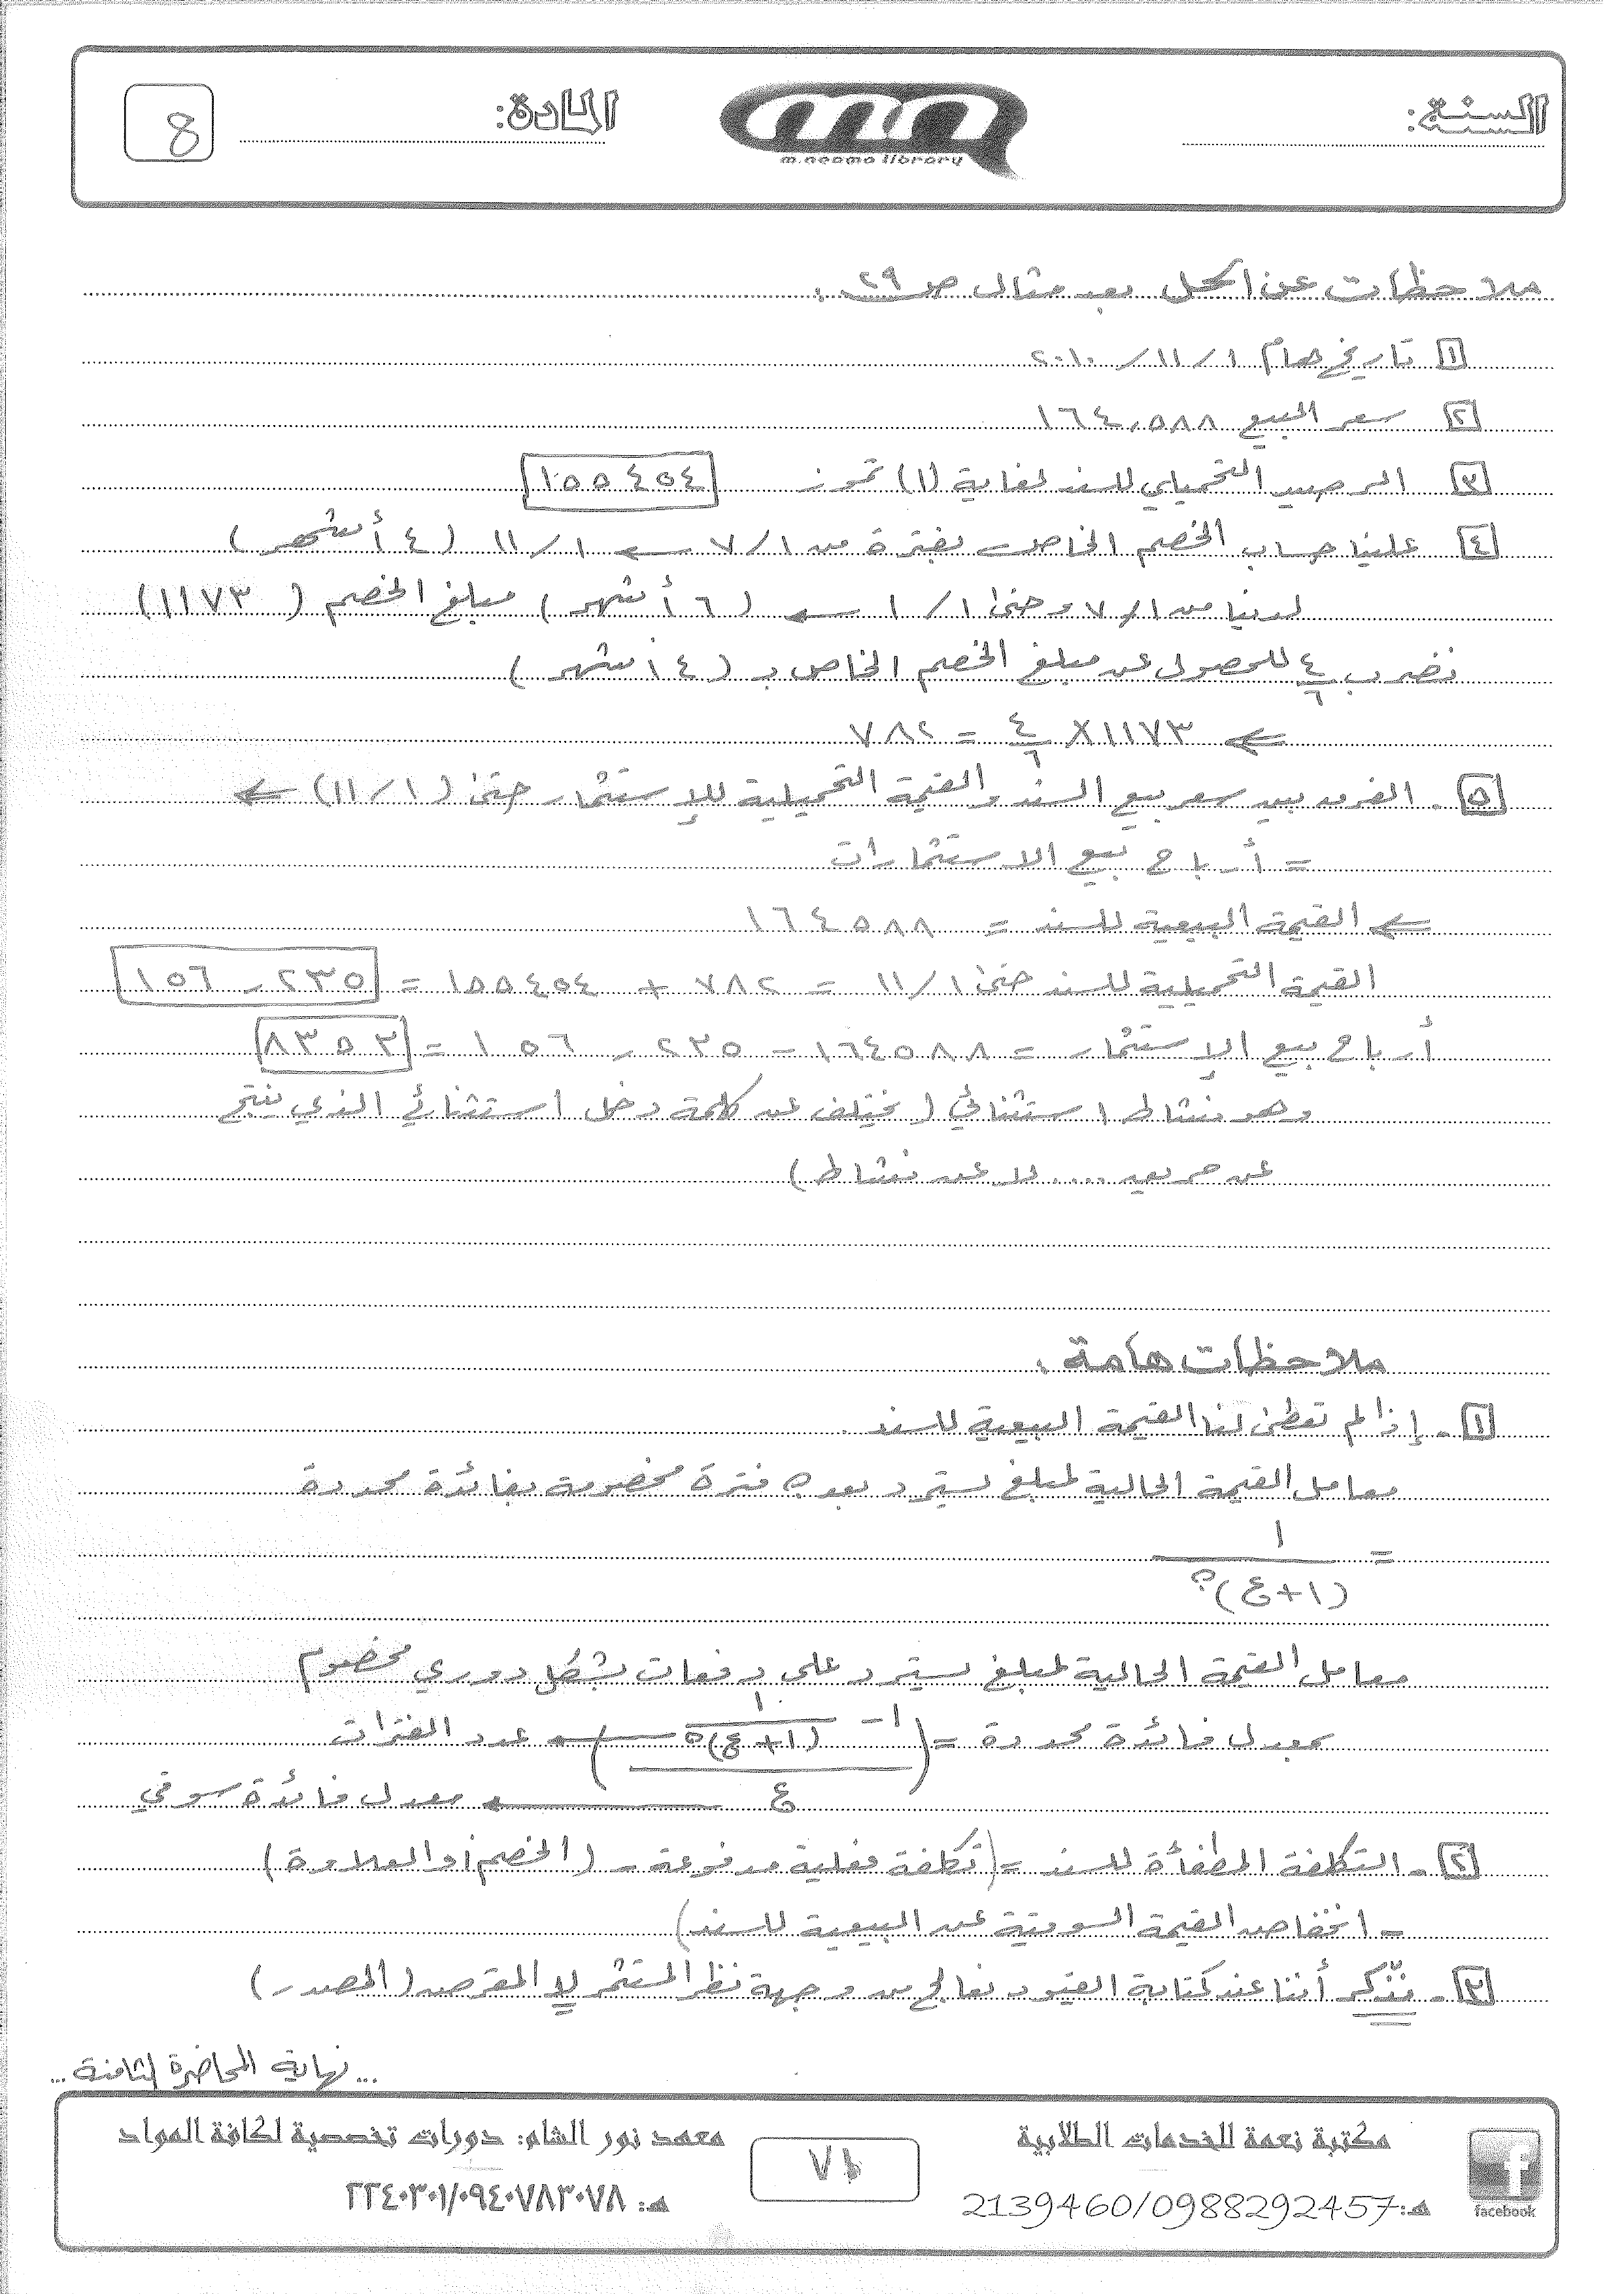 السنة:
mn
m.neama library
المادة:
8
ملاحظات عن الحل بعد مثال ص ٢٩ :
١ تاريخ هام ١ / ١١ / ٢٠١٠
٢ سعر البيع ١٦٤,٥٨٨
٣ الرصيد التحميلي للسند لغاية (١) تموز ١٥٥٤٥٤
٤ علينا حساب الخصم الخاص بفترة من ١ / ٧ ← ١ / ١١ ( ٤ أشهر )
لدينا من ١ / ٧ وحتى ١ / ١ ← ( ٦ أشهر ) مبلغ الخصم ( ١١٧٣ )
نضرب ٤/٦ للحصول عن مبلغ الخصم الخاص بـ ( ٤ أشهر )
← ١١٧٣ × ٤/٦ = ٧٨٢
٥ - الفرق بين سعر بيع السند والقيمة التحميلية للإستثمار حتى ( ١ / ١١ ) ←
= أرباح بيع الاستثمارات
← القيمة البيعية للسند = ١٦٤٥٨٨
القيمة التحميلية للسند حتى ١ / ١١ = ٧٨٢ + ١٥٥٤٥٤ = ١٥٦,٢٣٥
أرباح بيع الإستثمار = ١٦٤٥٨٨ - ١٥٦,٢٣٥ = ٨٣٥٣
وهو نشاط استثنائي ( يختلف عن كلمة دخل استثنائي الذي ينتج
عن .... لا عن نشاط )
ملاحظات هامة :
١ - إذا لم تعطى لنا القيمة البيعية للسند .
معامل القيمة الحالية لمبلغ يسترد بعد ن فترة مخصومة بفائدة محددة
= ١ / (١+ع)ن
معامل القيمة الحالية لمبلغ يسترد على دفعات بشكل دوري مخصوم
بمعدل فائدة محددة = (١ - ١ / (١+ع)ن) ← عدد الفترات
ع ← معدل فائدة سوقي
٢ - التكلفة المطفأة للسند = ( تكلفة فعلية مدفوعة - ( الخصم أو العلاوة )
- انخفاض القيمة السوقية عن البيعية للسند )
٣ - نذّكر أننا عند كتابة القيود نعالج من وجهة نظر المستثمر لا المقرض ( المصدر )
... نهاية المحاضرة الثامنة ...
facebook
مكتبة نعمة للخدمات الطلابية
هـ: 2139460/0988292457
٧٦
معهد نور الشام: دورات تخصصية لكافة المواد
هـ: ٢٢٤٠٣٠١/٠٩٤٠٧٨٣٠٧٨